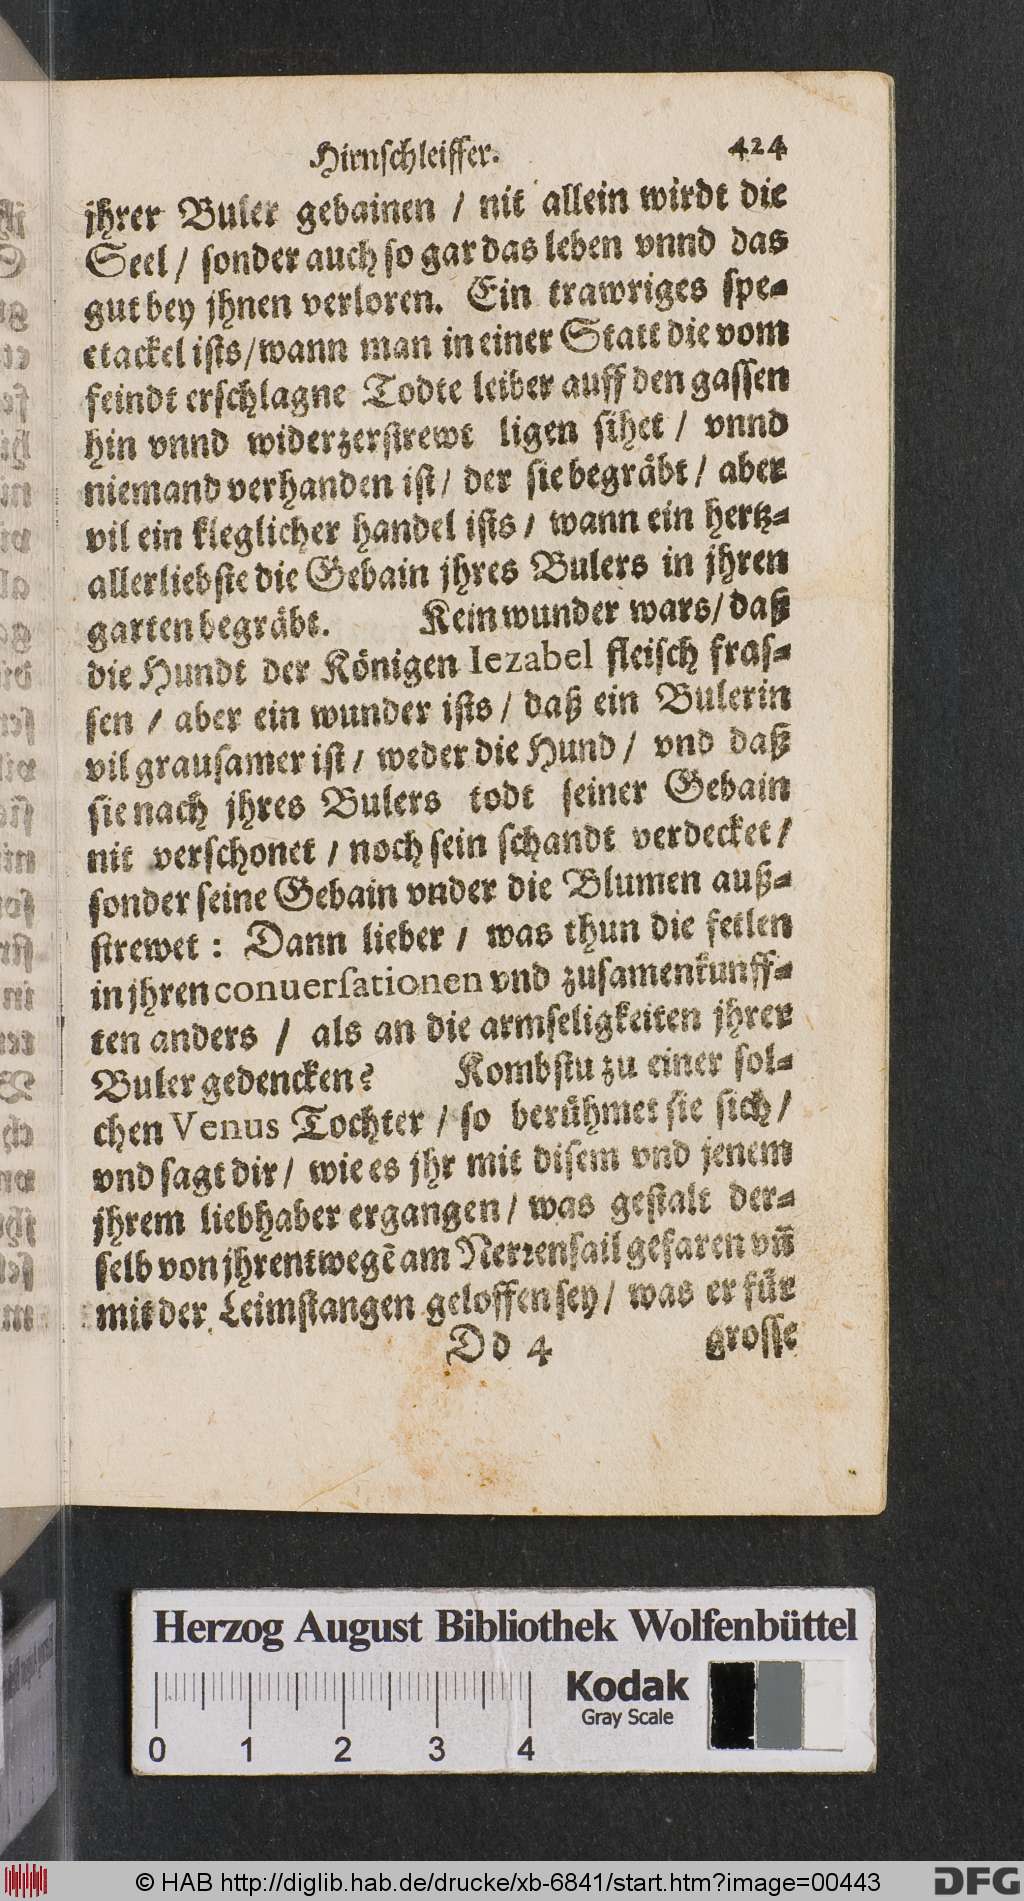 Hirnschleiffer. 424
jhrer Buler gebainen / nit allein wirdt die
Seel / sonder auch so gar das leben vnnd das
gut bey jhnen verloren. Ein trawriges spe-
ctackel ists / wann man in einer Statt die vom
feindt erschlagne Todte leiber auff den gassen
hin vnnd widerzerstrewt ligen sihet / vnnd
niemand verhanden ist / der sie begräbt / aber
vil ein kleglicher handel ists / wann ein hertz-
allerliebste die Gebain jhres Bulers in jhren
garten begräbt. Kein wunder wars / daß
die Hundt der Königen Iezabel fleisch fras-
sen / aber ein wunder ists / daß ein Bulerin
vil grausamer ist / weder die Hund / vnd daß
sie nach jhres Bulers todt seiner Gebain
nit verschonet / noch sein schandt verdecket /
sonder seine Gebain vnder die Blumen auß-
strewet : Dann lieber / was thun die fetlen
in jhren conuersationen vnd zusamenkunff-
ten anders / als an die armseligkeiten jhrer
Buler gedencken? Kombstu zu einer sol-
chen Venus Tochter / so berühmet sie sich /
vnd sagt dir / wie es jhr mit disem vnd jenem
jhrem liebhaber ergangen / was gestalt der-
selb von jhrentwegē am Nerrensail gefaren vn̄
mit der Leimstangen geloffen sey / was er für
Dd 4 grosse
Herzog August Bibliothek Wolfenbüttel
Kodak
Gray Scale
0 1 2 3 4
© HAB http://diglib.hab.de/drucke/xb-6841/start.htm?image=00443
DFG